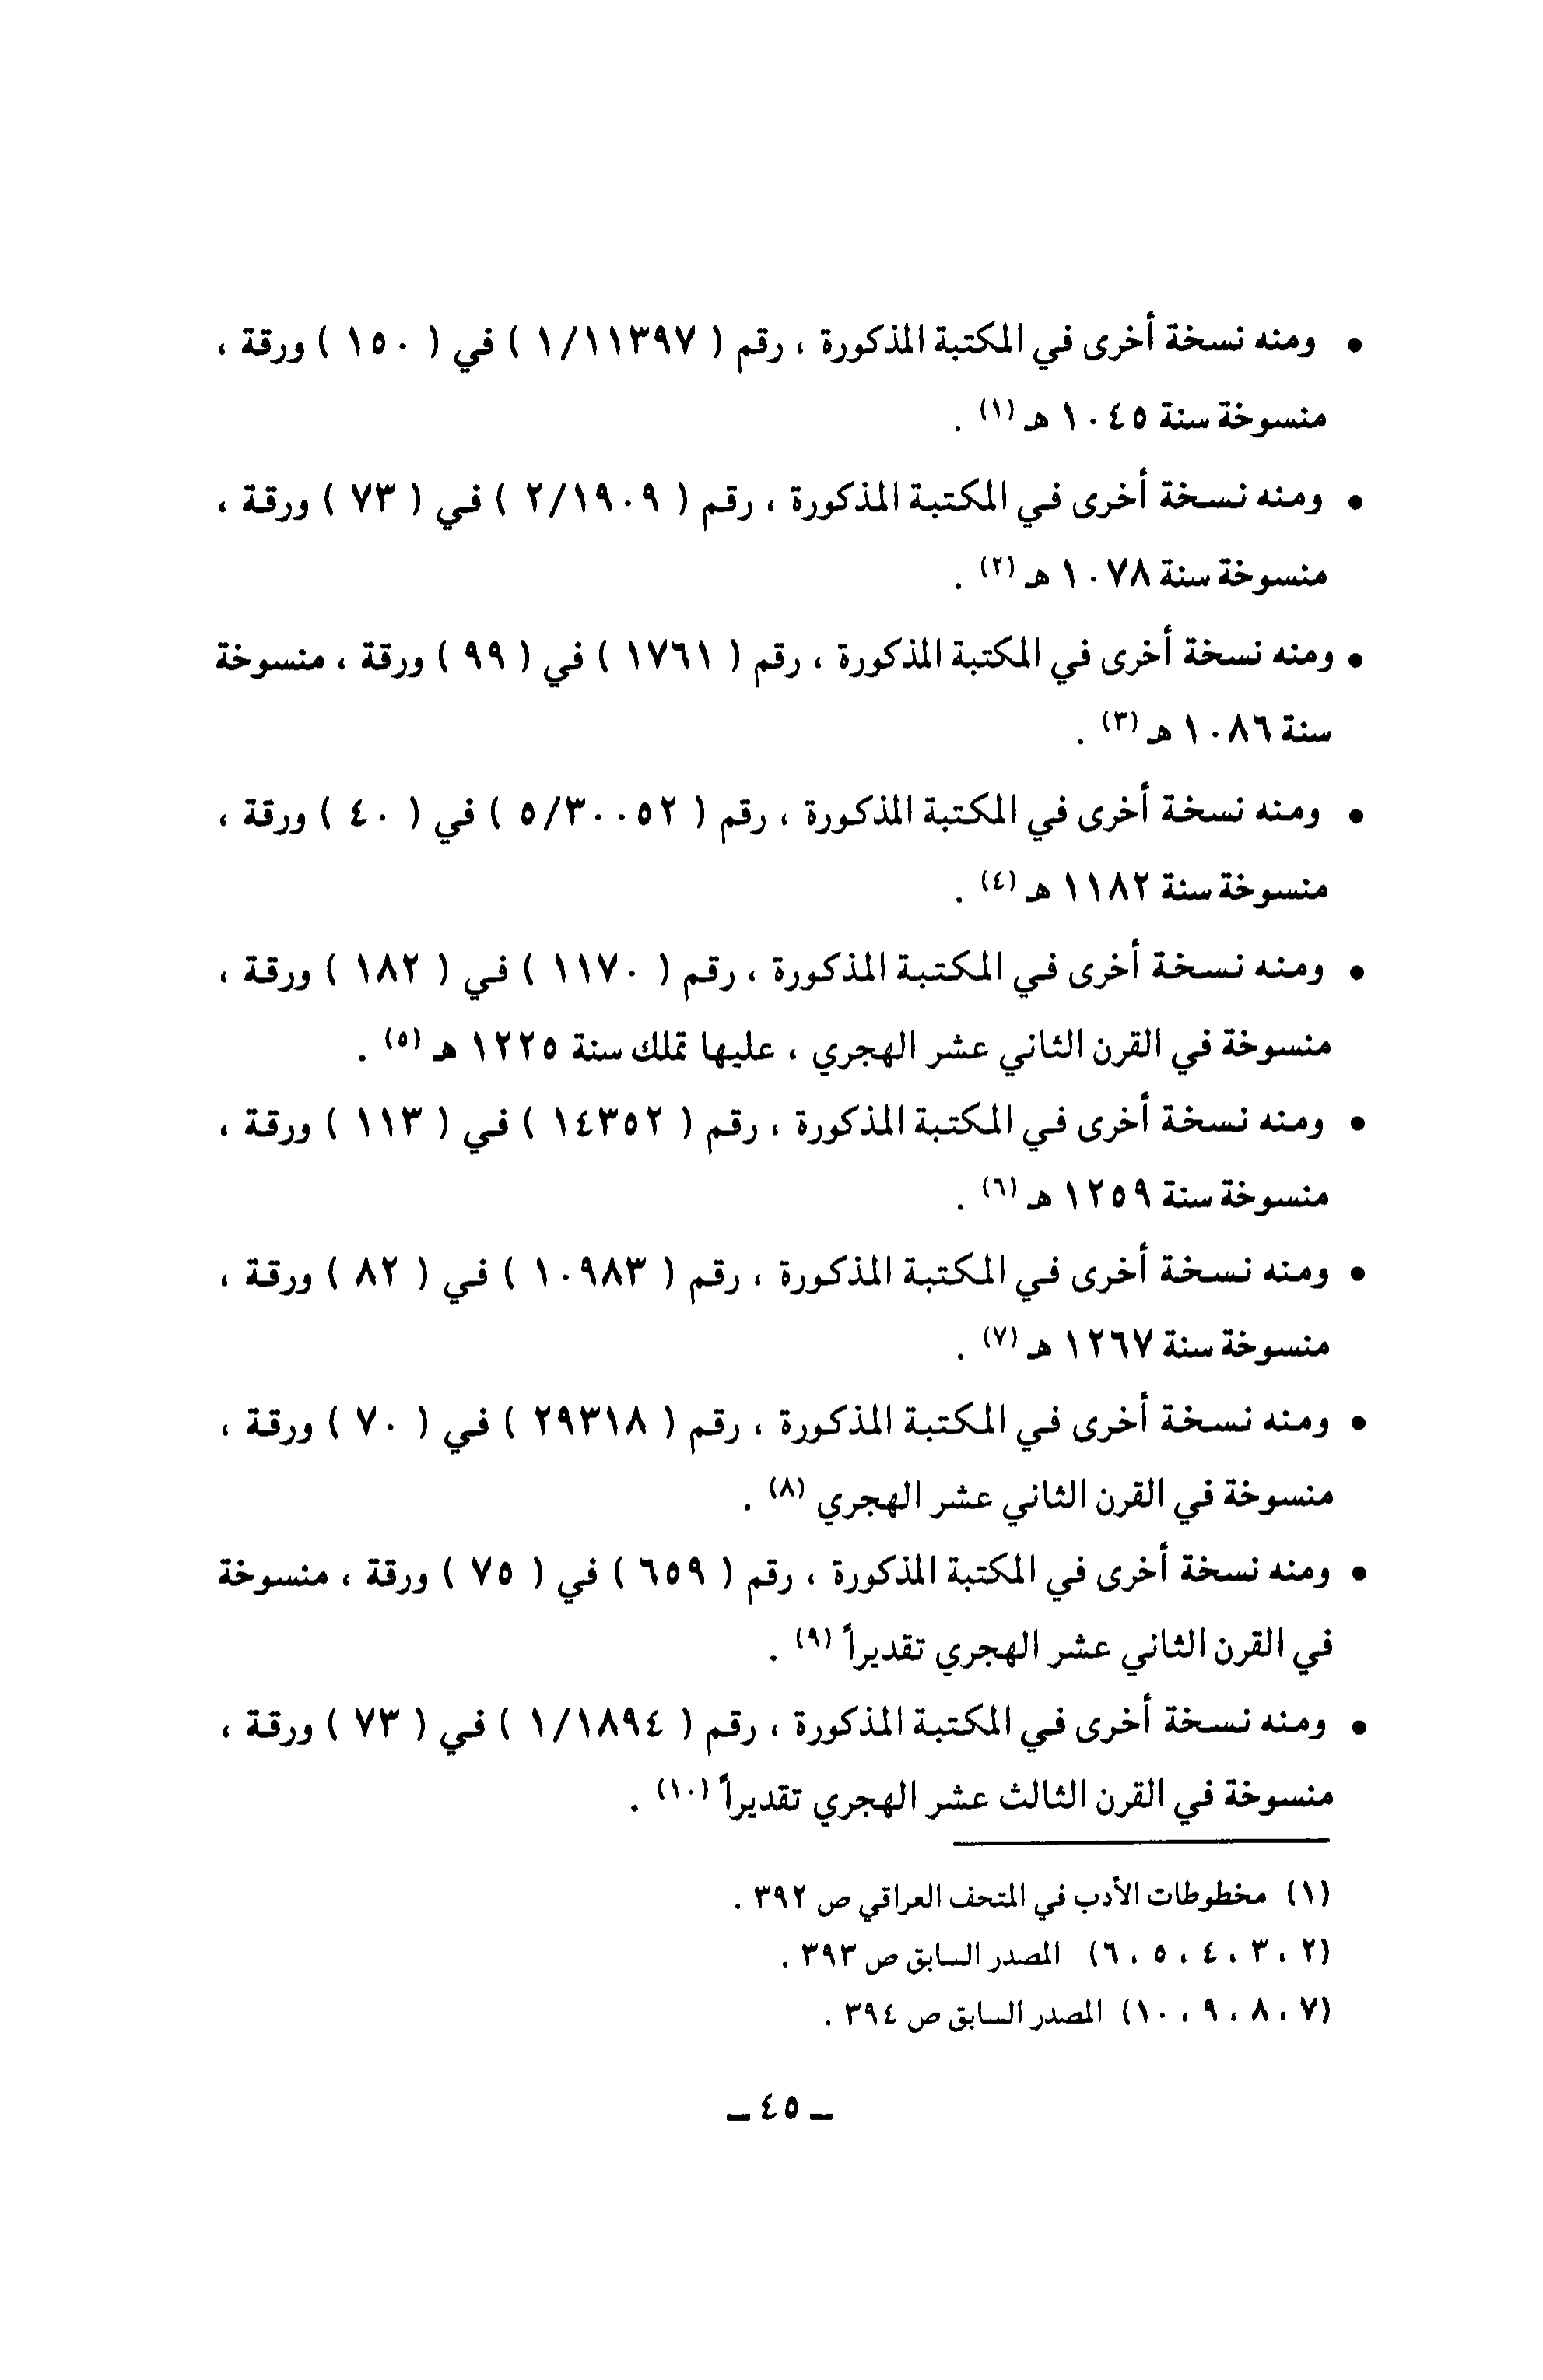 • ومنه نسخة أخرى في المكتبة المذكورة ، رقم ( ١/١١٣٩٧ ) في ( ١٥٠ ) ورقة ،
منسوخة سنة ١٠٤٥ هـ (١) .
• ومنه نسخة أخرى في المكتبة المذكورة ، رقم ( ٢/١٩٠٩ ) في ( ٧٣ ) ورقة ،
منسوخة سنة ١٠٧٨ هـ (٢) .
• ومنه نسخة أخرى في المكتبة المذكورة ، رقم ( ١٧٦١ ) في ( ٩٩ ) ورقة ، منسوخة
سنة ١٠٨٦ هـ (٣) .
• ومنه نسخة أخرى في المكتبة المذكورة ، رقم ( ٥/٣٠٠٥٢ ) في ( ٤٠ ) ورقة ،
منسوخة سنة ١١٨٢ هـ (٤) .
• ومنه نسخة أخرى في المكتبة المذكورة ، رقم ( ١١٧٠ ) في ( ١٨٢ ) ورقة ،
منسوخة في القرن الثاني عشر الهجري ، عليها تملك سنة ١٢٢٥ هـ (٥) .
• ومنه نسخة أخرى في المكتبة المذكورة ، رقم ( ١٤٣٥٢ ) في ( ١١٣ ) ورقة ،
منسوخة سنة ١٢٥٩ هـ (٦) .
• ومنه نسخة أخرى في المكتبة المذكورة ، رقم ( ١٠٩٨٣ ) في ( ٨٢ ) ورقة ،
منسوخة سنة ١٢٦٧ هـ (٧) .
• ومنه نسخة أخرى في المكتبة المذكورة ، رقم ( ٢٩٣١٨ ) في ( ٧٠ ) ورقة ،
منسوخة في القرن الثاني عشر الهجري (٨) .
• ومنه نسخة أخرى في المكتبة المذكورة ، رقم ( ٦٥٩ ) في ( ٧٥ ) ورقة ، منسوخة
في القرن الثاني عشر الهجري تقديراً (٩) .
• ومنه نسخة أخرى في المكتبة المذكورة ، رقم ( ١/١٨٩٤ ) في ( ٧٣ ) ورقة ،
منسوخة في القرن الثالث عشر الهجري تقديراً (١٠) .
(١) مخطوطات الأدب في المتحف العراقي ص ٣٩٢ .
(٢ ، ٣ ، ٤ ، ٥ ، ٦) المصدر السابق ص ٣٩٣ .
(٧ ، ٨ ، ٩ ، ١٠) المصدر السابق ص ٣٩٤ .
ـ ٤٥ ـ